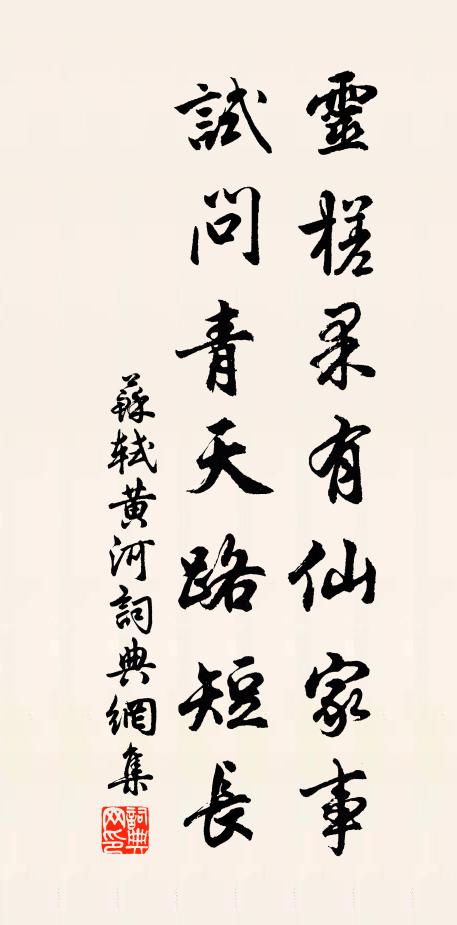 靈槎果有仙家事
試問青天路短長
蘇軾黃河詞典網集
詞典網印